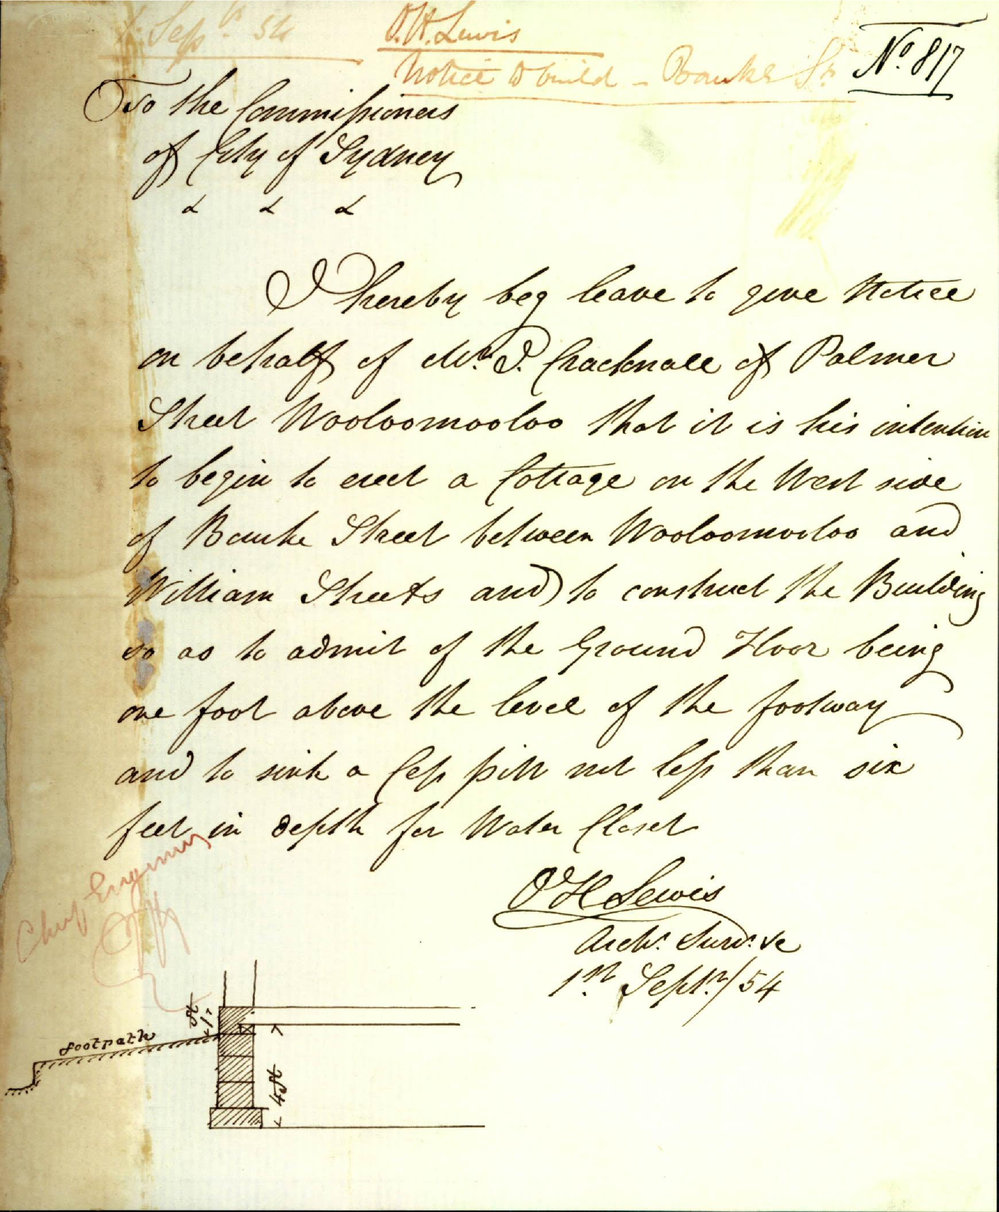 1 Sepr. 54
O.H. Lewis
Notice to build - Bourke St.
No. 817
To the Commissioners
of City of Sydney
& & &
I hereby beg leave to give Notice
on behalf of Mr. J. Cracknall of Palmer
Street Wooloomooloo that it is his intention
to begin to erect a Cottage on the West side
of Bourke Street between Wooloomooloo and
William Streets and to construct the Building
so as to admit of the Ground Floor being
one foot above the level of the footway
and to sink a Cess pitt not less than six
feet in depth for Water Closet
O H Lewis
Archt. Survr. &c
1st. Septr./54
Chief Engineer
footpath
1 ft
4 ft